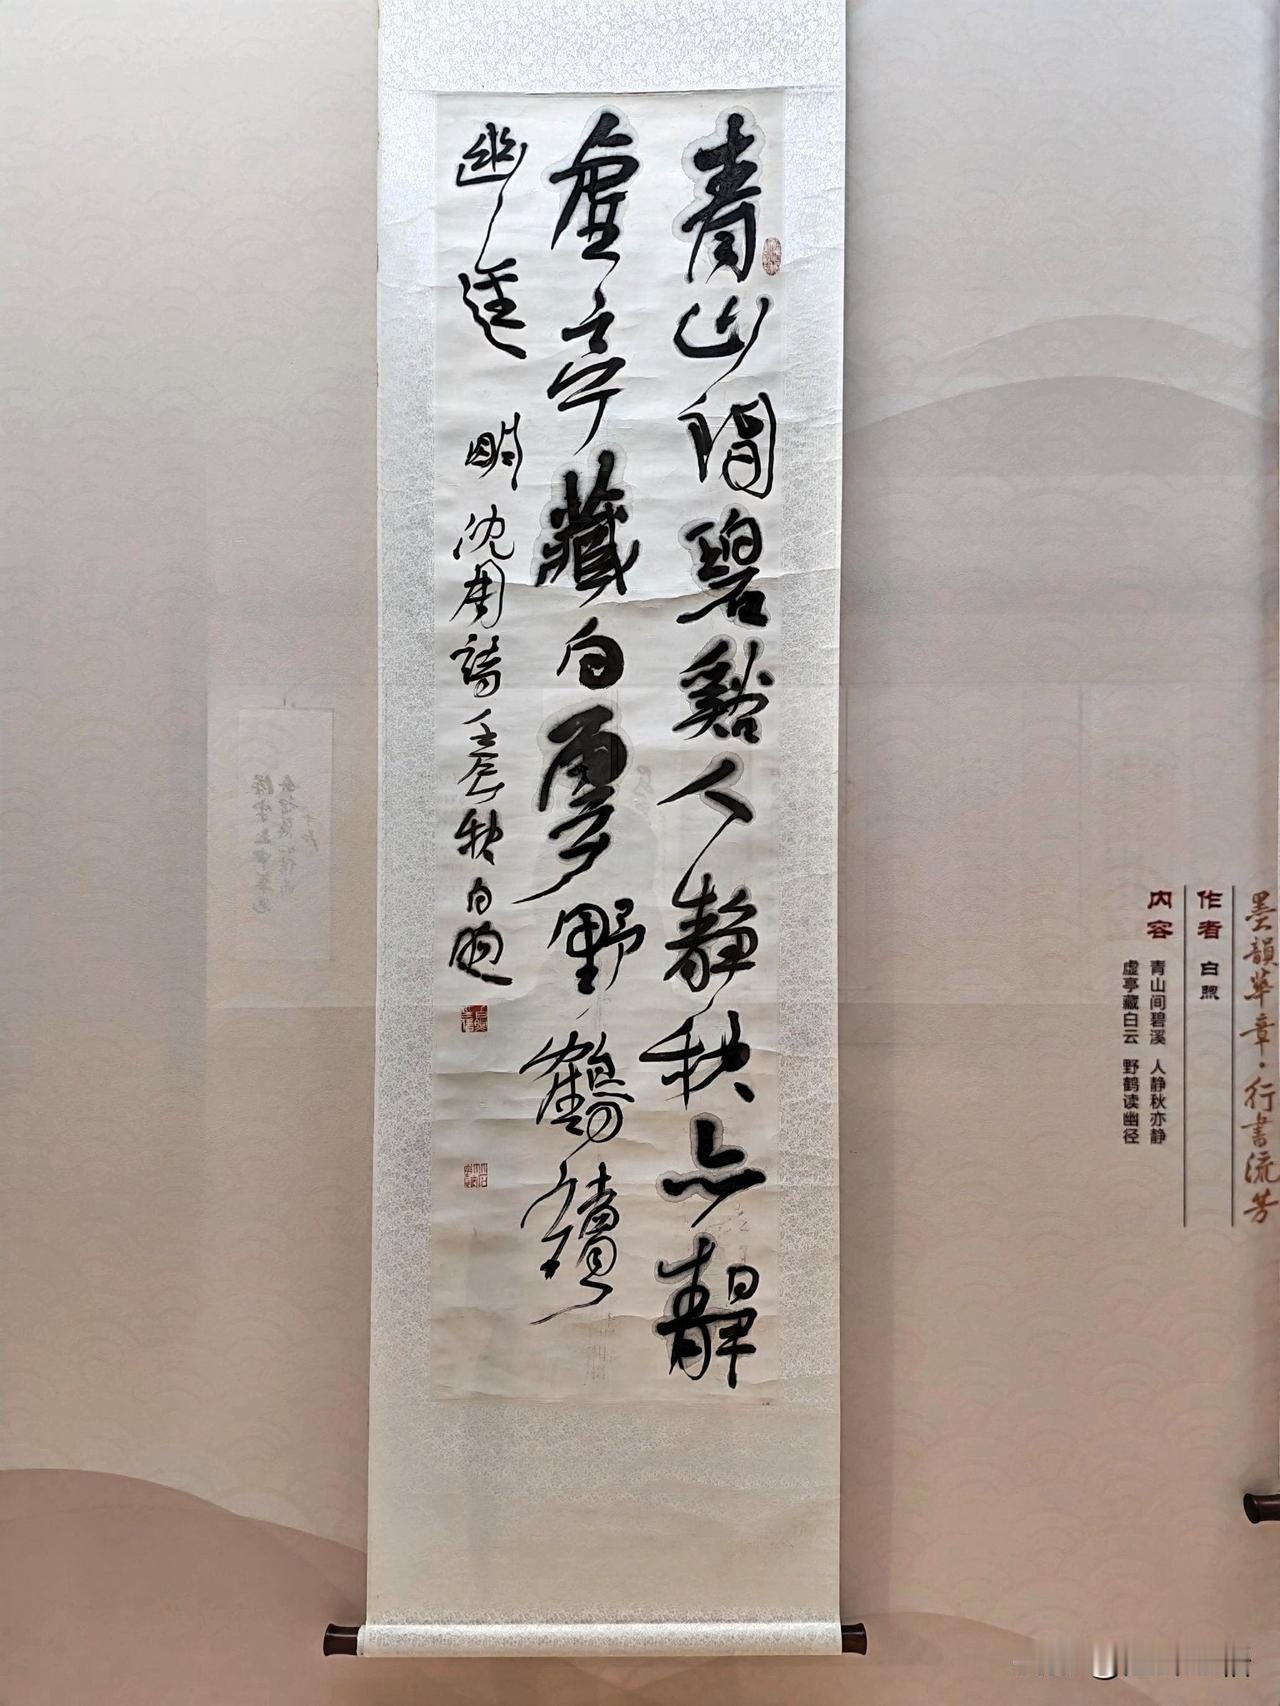 青山間碧谿人靜秋亦靜
虛亭藏白雲野鶴讀
幽逕 明沈周詩壬辰秋白照
墨韻華章·行書流芳
作者 白照
内容 青山间碧溪 人静秋亦静
虚亭藏白云 野鹤读幽径